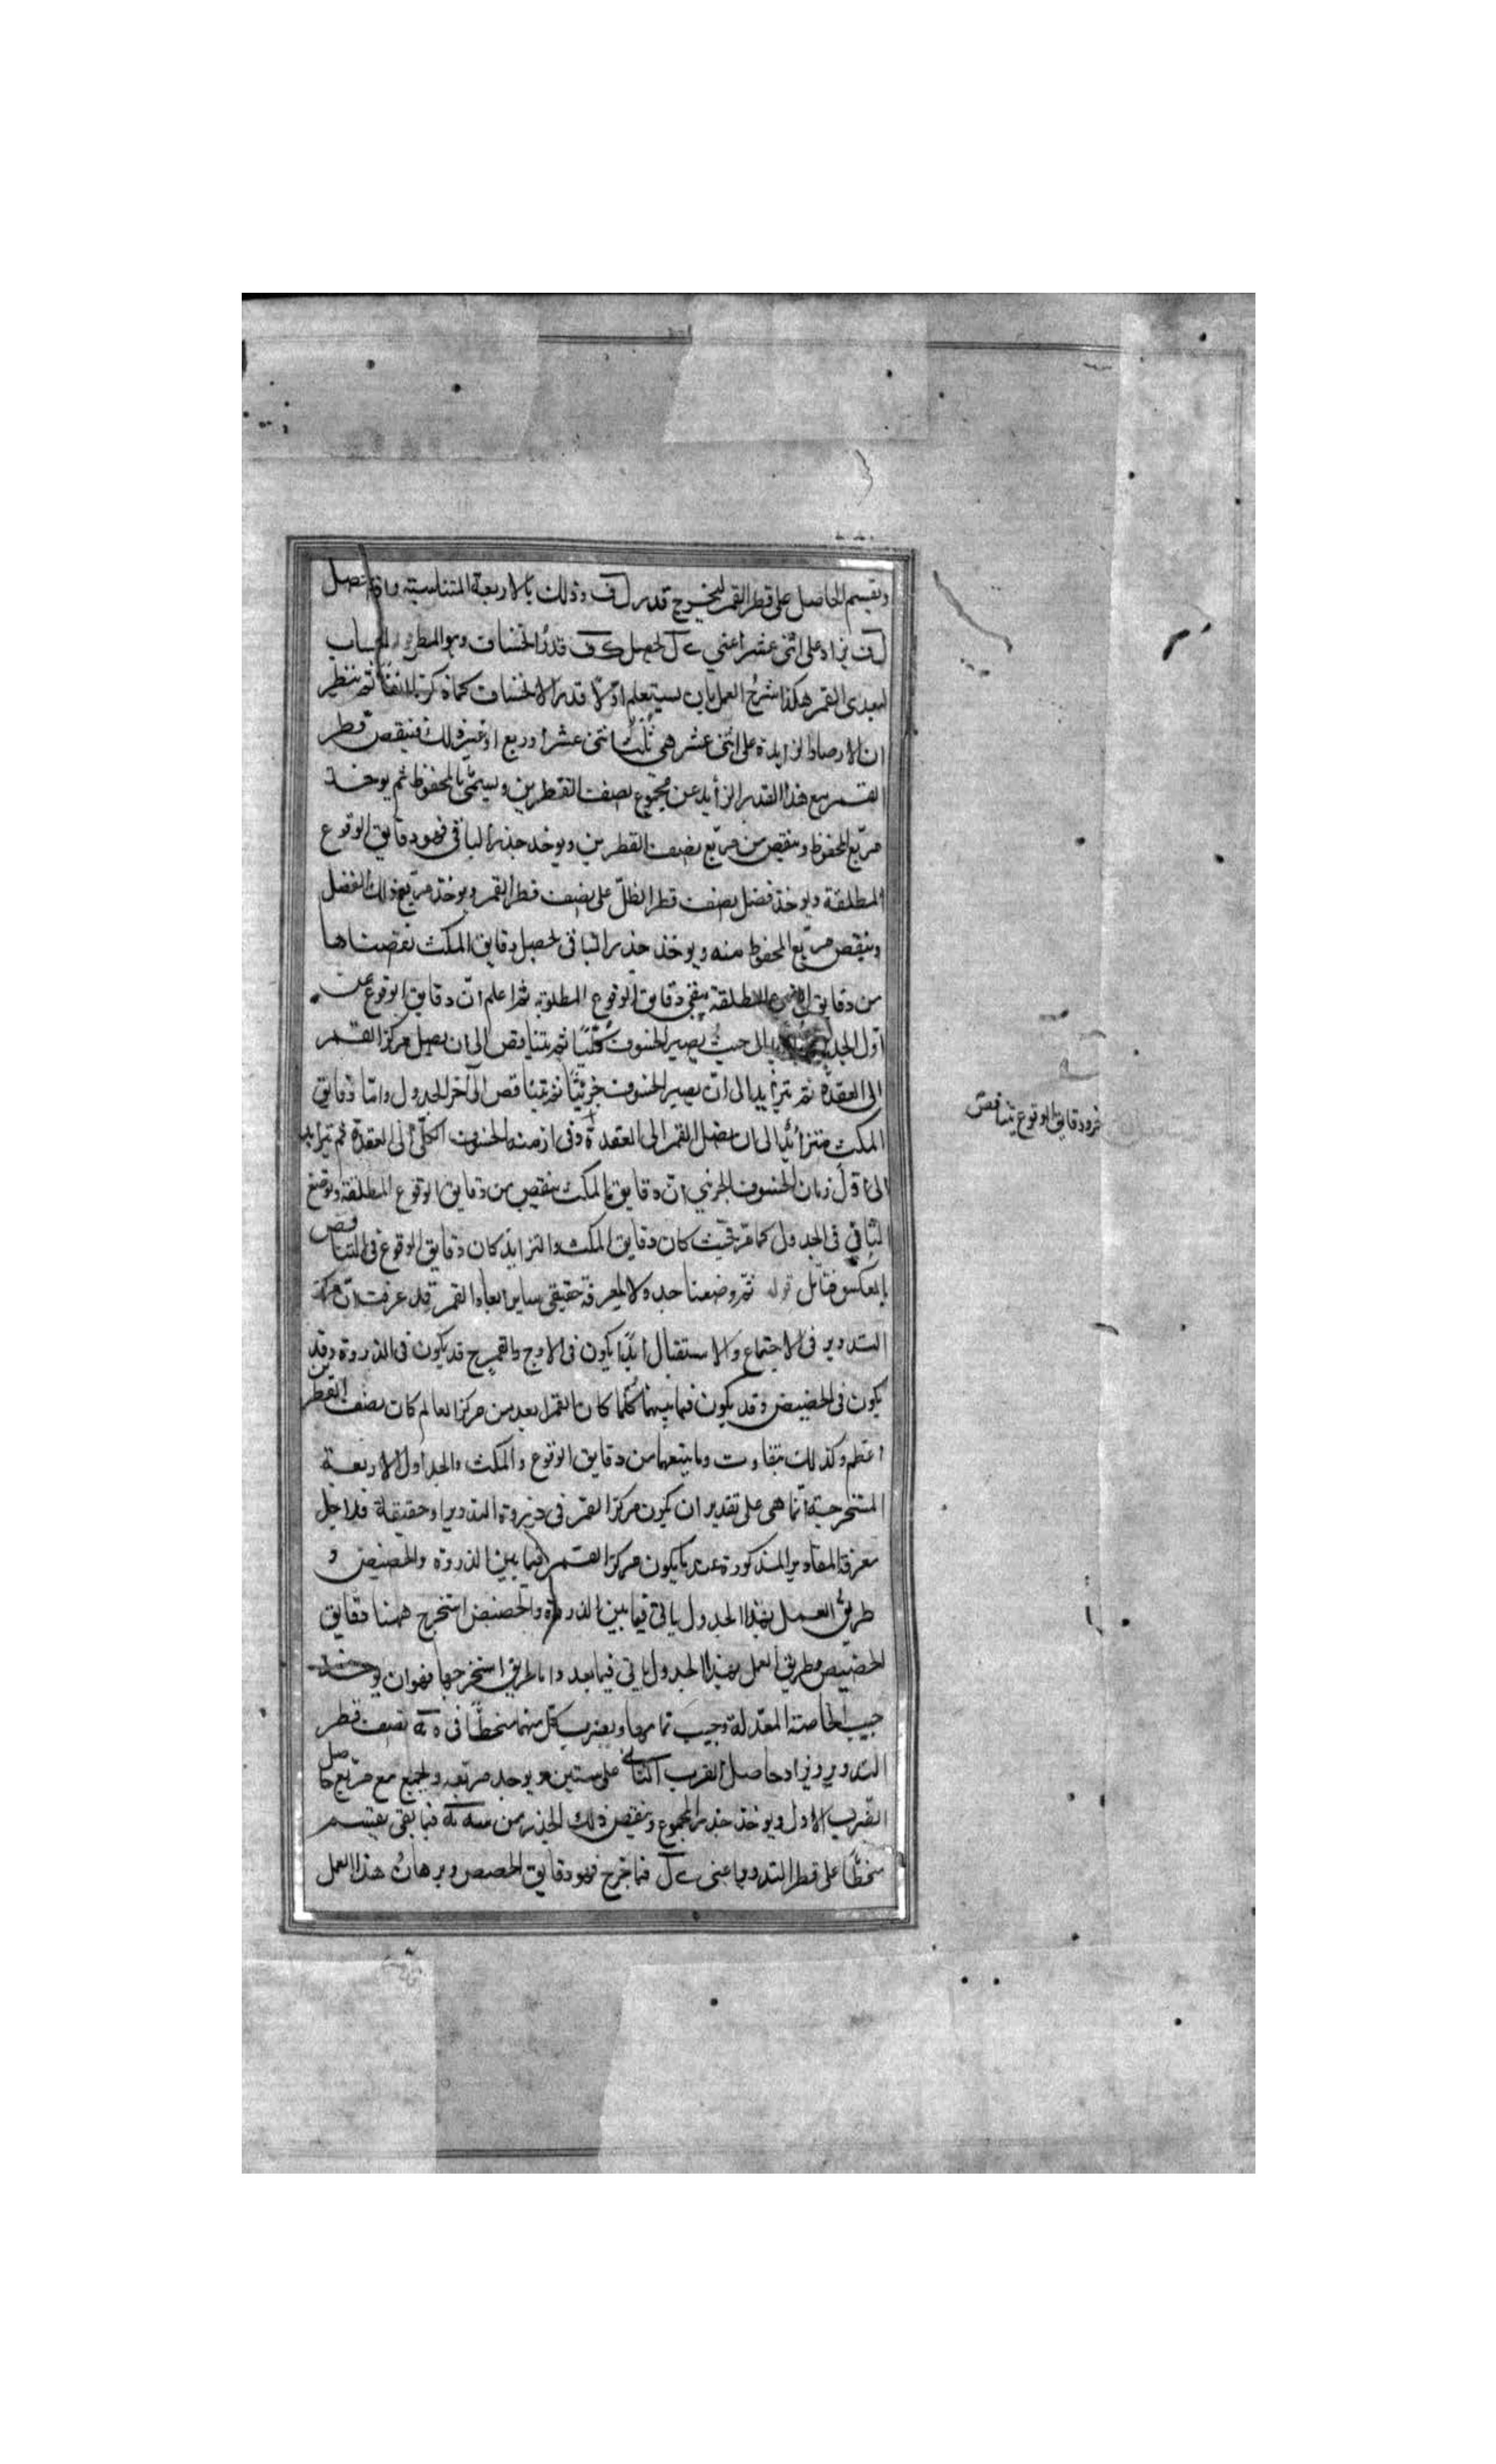 ونقسم الحاصل على قطر القمر ليخرج قدر ل ف وذلك بالاربعة المتناسبة واذا حصل
ل ف يزاد على اثنى عشر اعني ع ل لحصل ع ف قدر الخساف وهو المطلوب الحساب
لبعدى القمر هكذا شرح العمل بان يستعلم اولا قدر الانخساف كما ذكرته ثم ننظر
ان الارصاد الزايدة على اثنى عشر هي ثلث اثنى عشر او ربع او غير ذلك فينقص قطر
القمر مع هذا القدر الزايد عن مجموع نصف القطرين ويسمى بالمحفوظ ثم يوخذ
مربع المحفوظ وينقص من مربع نصف القطرين ويوخذ جذر الباقى فهو دقايق الوقوع
المطلقة ويوخذ فضل نصف قطر الظل على نصف قطر القمر ويوخذ مربع ذلك الفضل
وينقص مربع المحفوظ منه ويوخذ جذر الباقى لحصل دقايق المكث نقصناها
من دقايق الوقوع المطلقة يبقى دقايق الوقوع المطلوبة ثم اعلم ان دقايق الوقوع من
اول الجدول الى حيث يصير الخسوف كليا ثم يتناقص الى ان يصل مركز القمر
الى العقدة ثم يتزايد الى ان يصير الخسوف جزئيا ثم يتناقص الى آخر الجدول واما دقايق
المكث فتزايد الى ان يصل القمر الى العقدة وفى ازمنة الخسوف الكلى الى العقدة ثم تزايد
الى اول زمان الخسوف الجزئي ان دقايق المكث ينقص من دقايق الوقوع المطلقة ويوضع
الباقي فى الجدول كما مر فحيث كان دقايق المكث والتزايد كان دقايق الوقوع فى التناقص
بالعكس فتأمل قوله ثم وضعنا جدولا لمعرفة حقيقى ساير ابعاد القمر قد عرفت ان مركز
التدوير فى الاجتماع والاستقبال ابدا يكون فى الاوج والقمر ح قد يكون فى الذروة وقد
يكون فى الحضيض وقد يكون فيما بينهما كلما كان القمر ابعد من مركز العالم كان نصف القطرين
اعظم وكذلك يتفاوت وما يتبعها من دقايق الوقوع والمكث والجداول الاربعة
المستخرجة انما هى على تقدير ان يكون مركز القمر فى ذروة التدوير او حضيضه فلاجل
معرفة المقادير المذكورة عند ما يكون مركز القمر فيما بين الذروة والحضيض و
طريق العمل بهذا الجدول ياتى فيما بين الذروة والحضيض استخرج ههنا دقايق
الحضيض وطريق العمل بهذا الجدول ياتى فيما بعد واما طريق استخرجها فهو ان يوخذ
جيب الخاصة المعدلة وجيب تمامها ويضرب كل منهما منحطا فى نصف قطر
التدوير ويزاد حاصل الضرب الثانى على ستين ويوخذ مربعه ويجمع مع مربع حاصل
الضرب الاول ويوخذ جذر المجموع وينقص ذلك الجذر من فما بقى يقسم
منحطا على قطر التدوير اعنى فما خرج فهو دقايق الحصص وبرهان هذا العمل
ثم دقايق الوقوع يتناقص